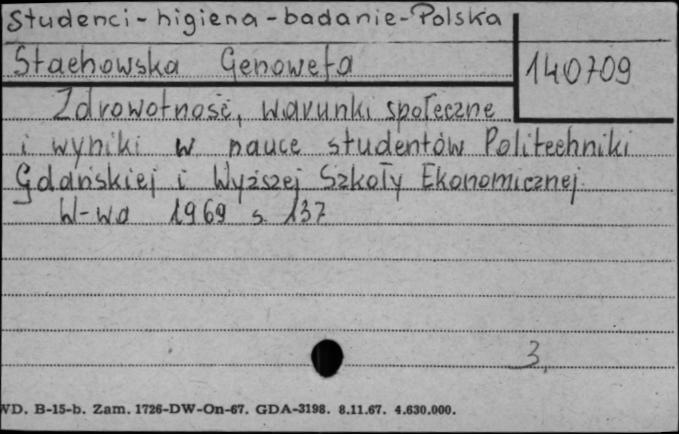 Studenci - higiena - badanie - Polska
Stachowska Genowefa
140709
Zdrowotność, warunki społeczne
i wyniki w nauce studentów Politechniki
Gdańskiej i Wyższej Szkoły Ekonomicznej.
W-wa 1969 s. 137
3
WD. B-15-b. Zam. 1726-DW-On-67. GDA-3198. 8.11.67. 4.630.000.